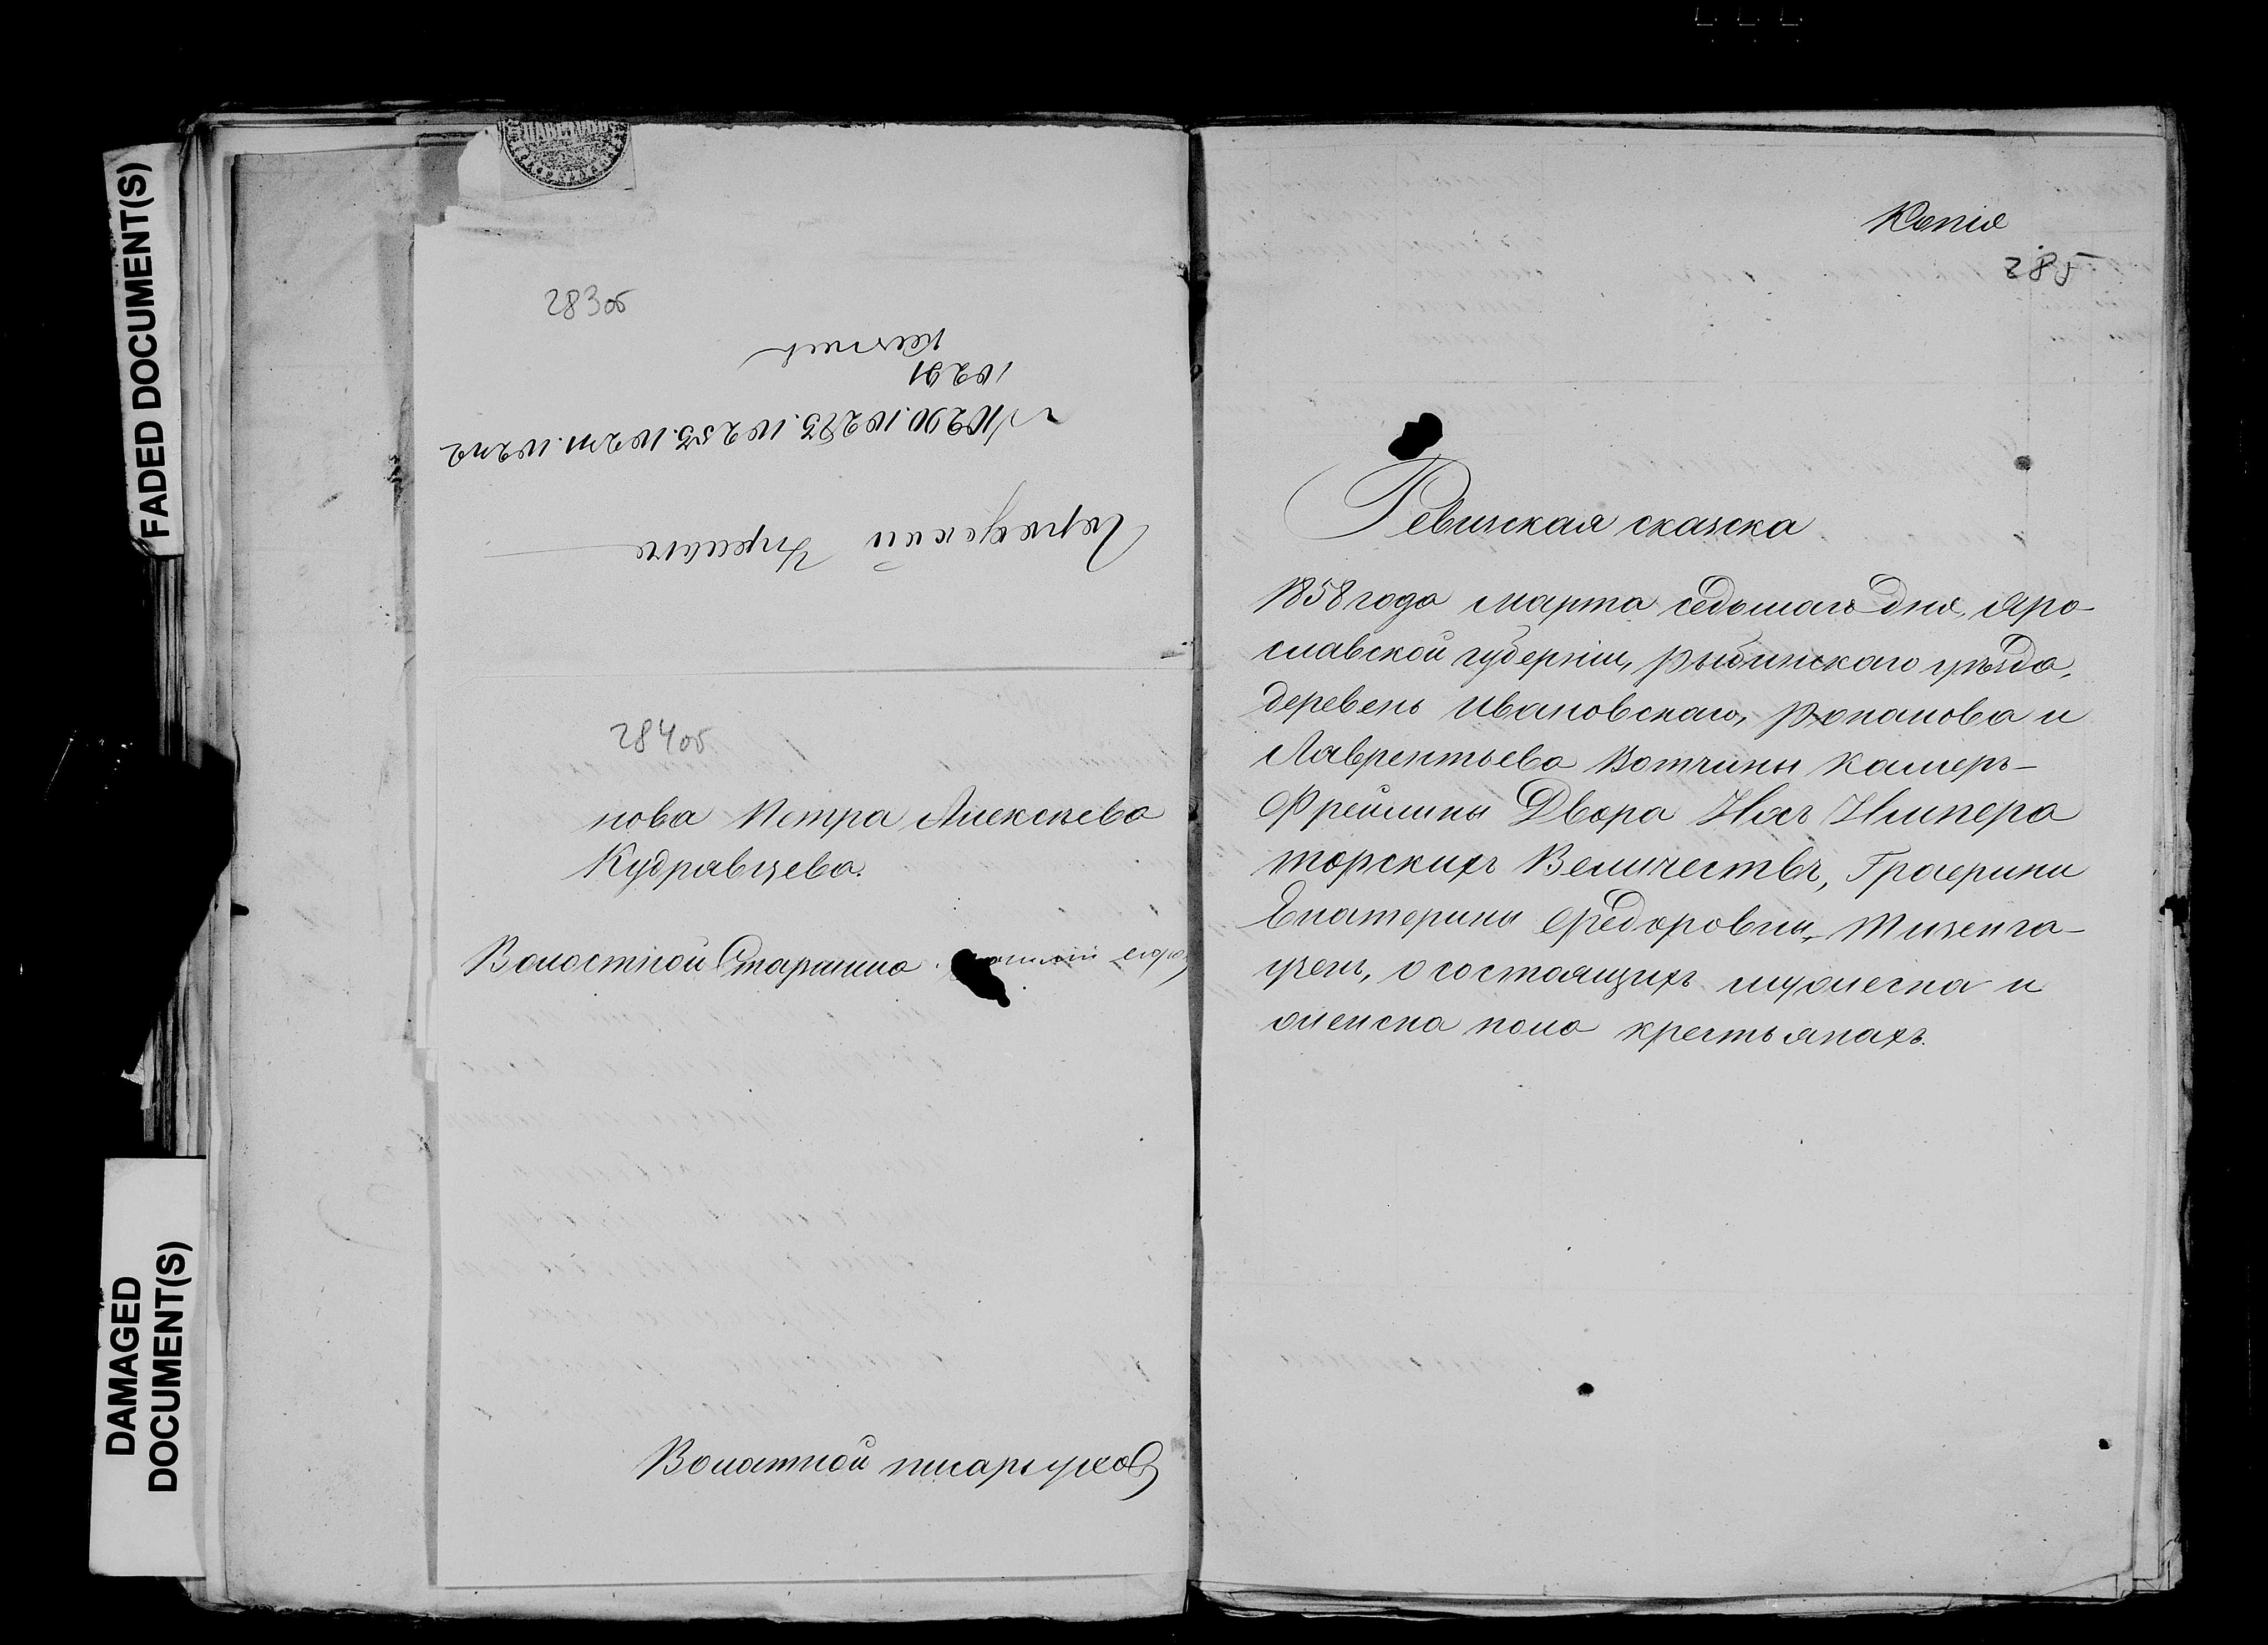 FADED DOCUMENT(S)
DAMAGED
DOCUMENT(S)
283об
10291
Городской Управе
284об
нова Петра Алексѣева
Кудрявцева.
Волостной Старшина
Волостной писарь
Копія
285
Ревизская сказка
1858 года марта седьмаго дня, Яро-
славской губерніи, Рыбинскаго уѣзда,
деревень Ивановскаго, и
Лаврентьева Вотчины Камеръ-
Фрейлины Двора Ихъ Импера
торскихъ Величествъ, Графини
Екатерины Федоровны Тизенга-
узенъ, о состоящихъ мужеска и
женска пола крестьянахъ.